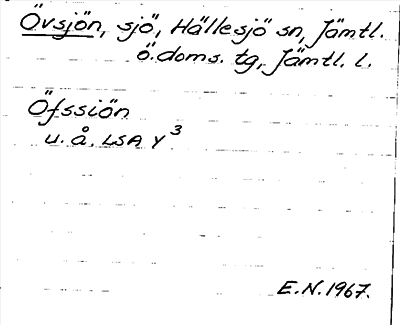 Övsjön, sjö, Hällesjö sn, Jämtl.
ö. doms. tg, Jämtl. l.
Öfssiön
u. å. LSA Y³
E.N. 1967.